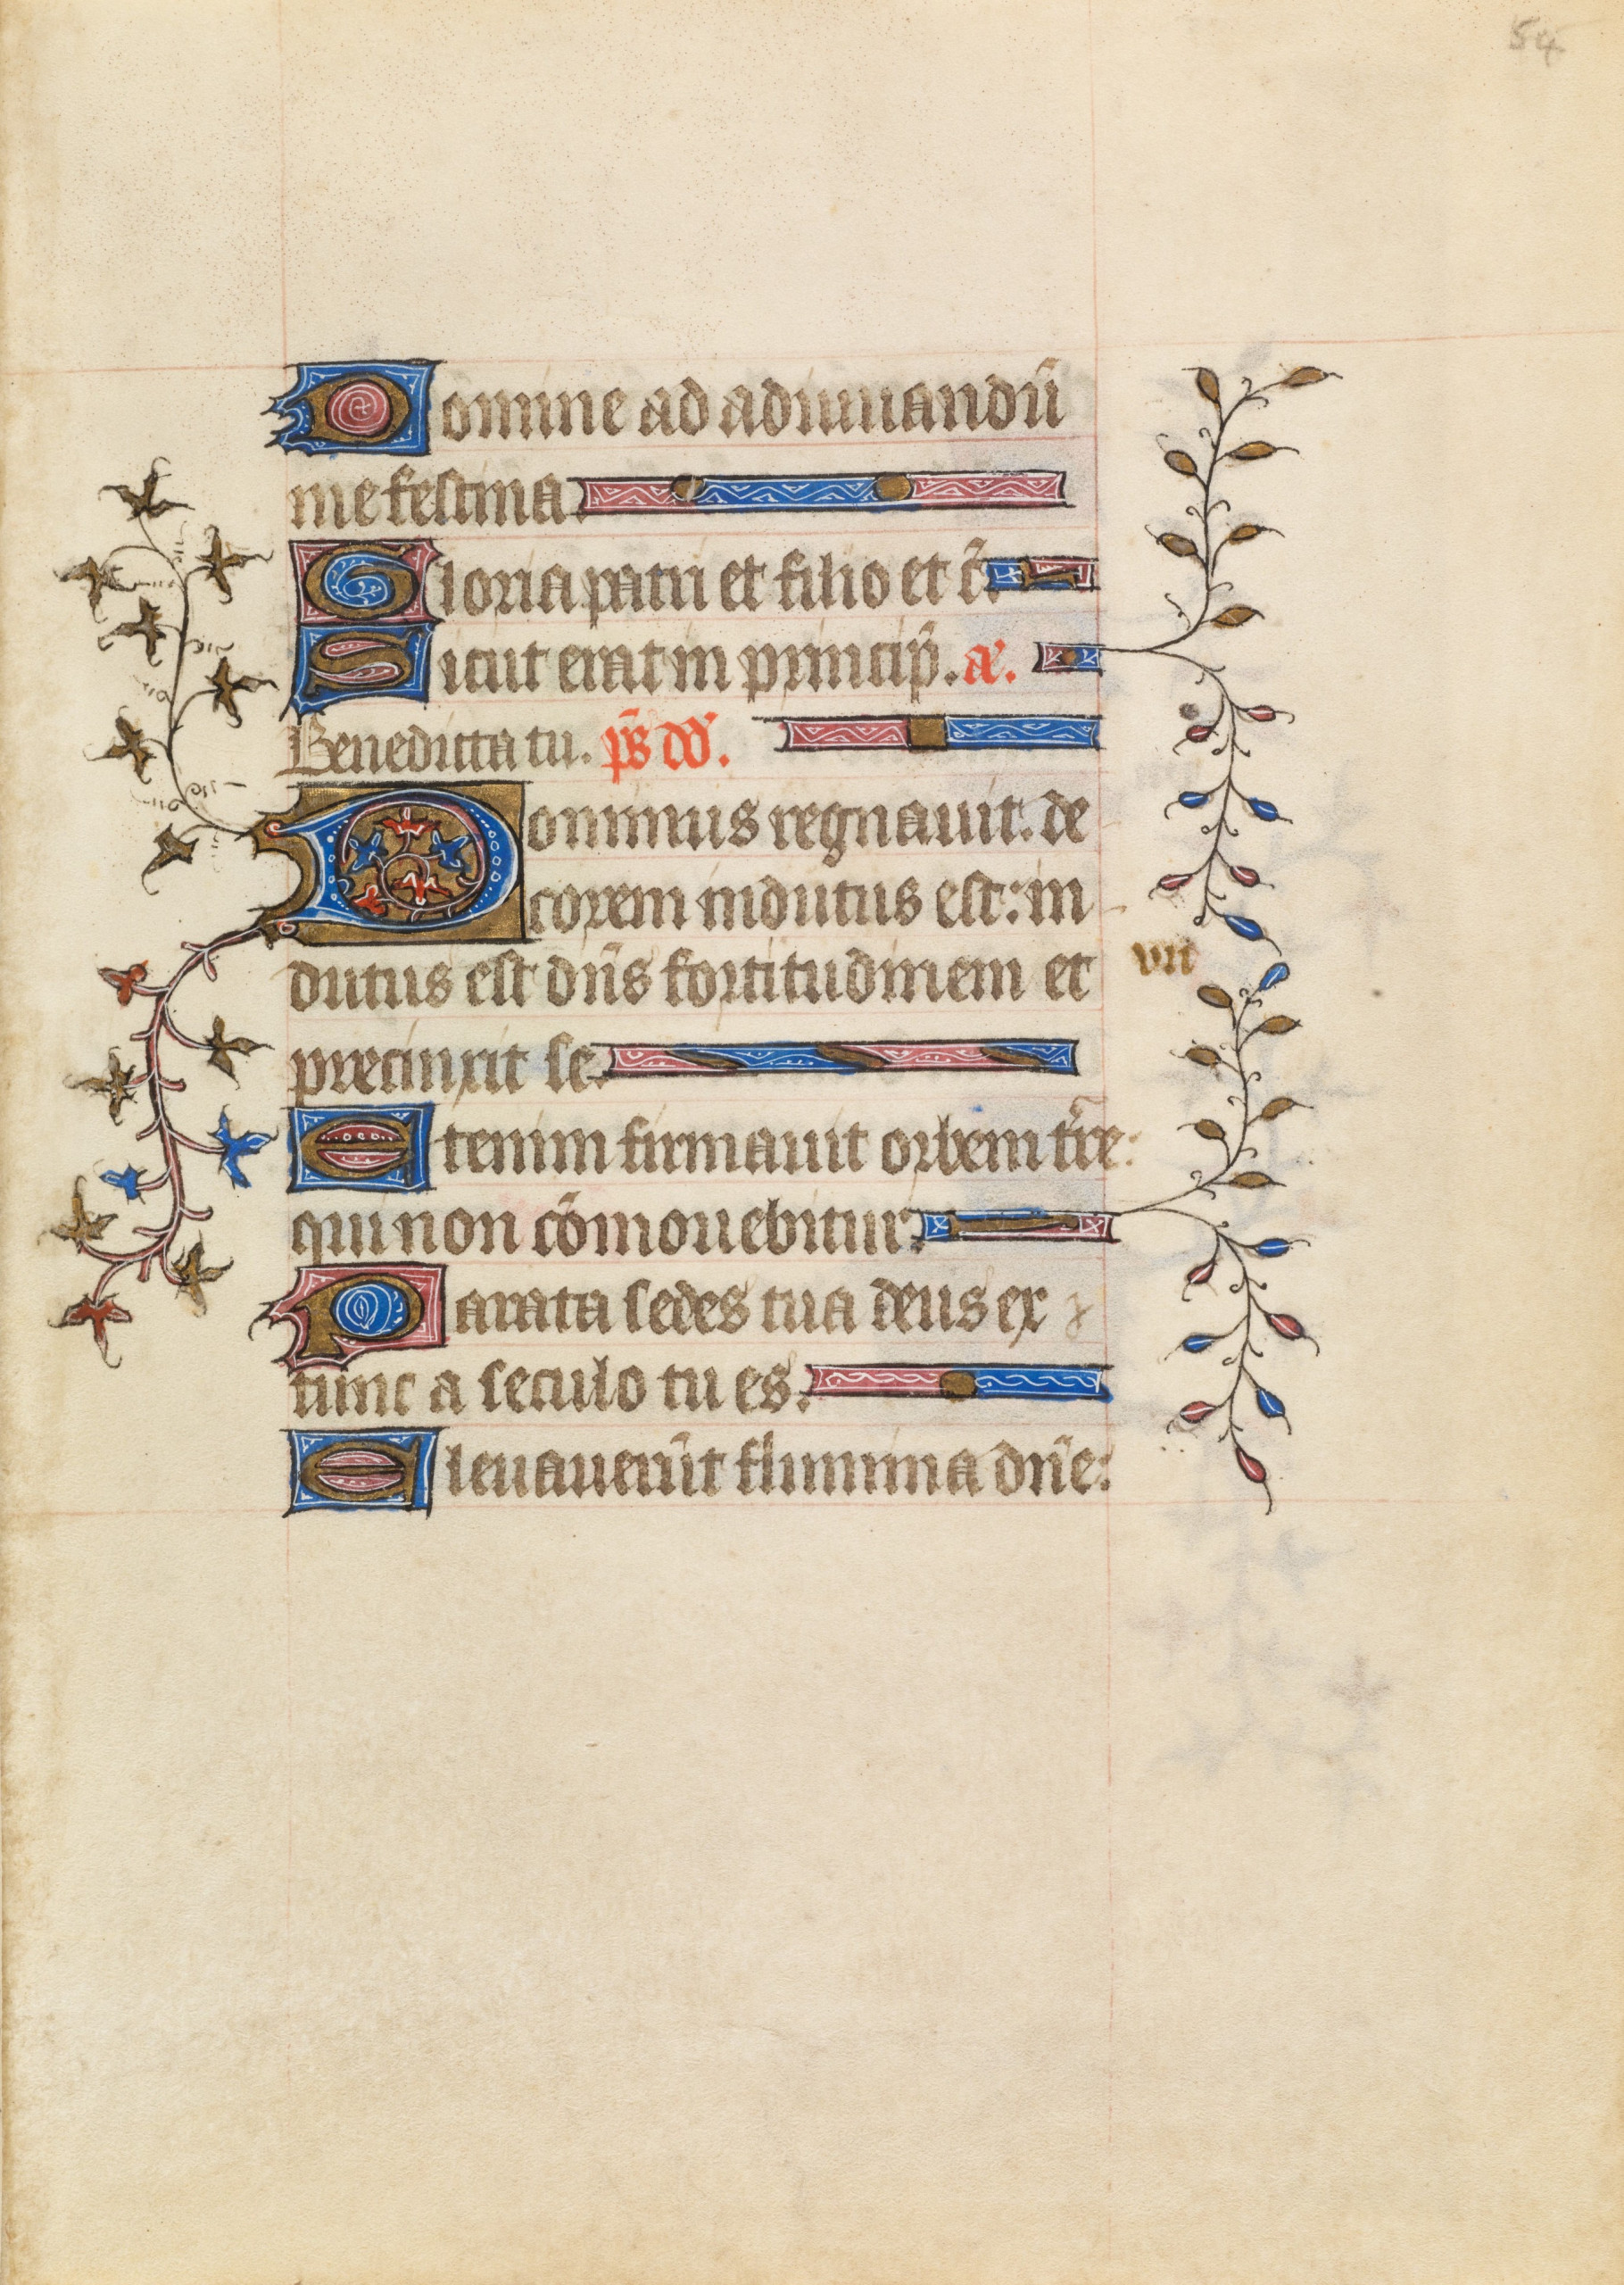 54
Domine ad adiuuandū
me festina.
Gloria patri et filio et c̄.
Sicut erat in princip̄. a͛.
Benedicta tu. p̄s dd͛.
Dominus regnauit. de
corem indutus est: in
dutus est dn̄s fortitudinem et
precinxit se.
Etenim firmauit orbem tr̄e:
qui non cōmouebitur.
Parata sedes tua deus ex
tunc a seculo tu es.
Eleuauerūt flumina dn̄e: